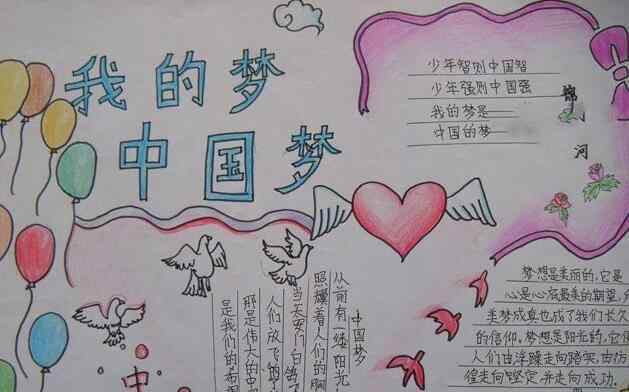 我的梦
中国梦
少年智则中国智
少年强则中国强
我的梦是
中国的梦
锦
河
中国梦
从前有一缕阳光
照耀着人们的胸
当天安门白鸽
人们放飞的
那是伟大的中
是我们的希
中
梦想是美丽的,它是
心是心底最美的期望,
美梦成真也成了我们长久
的信仰。梦想是阳光的,它
人们由浮躁走向踏实,由彷
徨走向坚定,并走向成功。